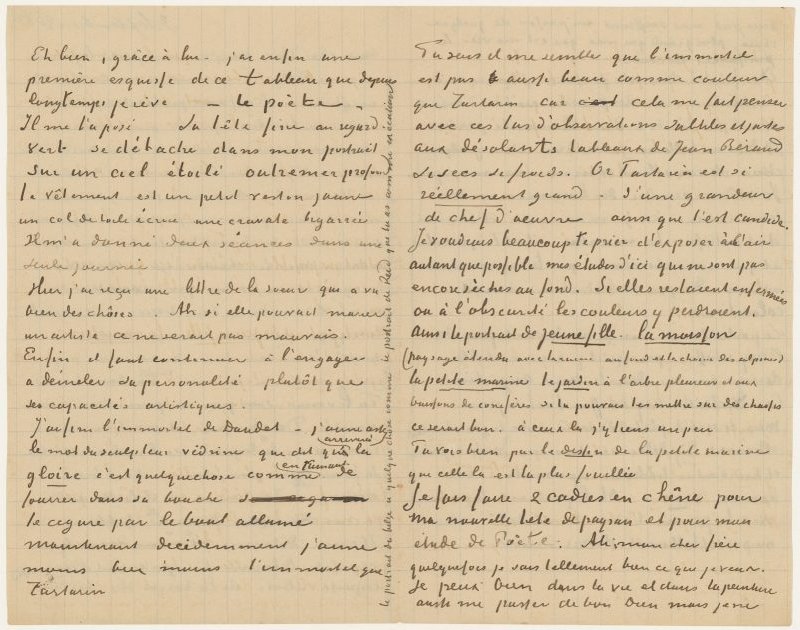 Eh bien, grâce à lui – j'ai enfin une
première esquisse de ce tableau que depuis
longtemps je rêve – le poète –
Il me l'a posé. Sa tête fine au regard
vert se détache dans mon portrait
sur un ciel étoilé outremer profond
le vêtement est un petit veston jaune
un col de toile écrue une cravate bigarrée
Il m'a donné deux séances dans une
seule journée
Hier j'ai reçu une lettre de la soeur qui a vu
bien des choses. Ah si elle pouvait marier
un artiste ce ne serait pas mauvais.
Enfin il faut continuer à l'engager
a demeler sa personalité plutôt que
ses capacités artistiques.
J'ai fini l'immortel de Daudet – j'aime assez
le mot du sculpteur védrine qui dit que arrivér à la
gloire c'est quelquechose comme en fumant de
fourrer dans sa bouche
le cegare par le bout allumé
maintenant decidemment j'aime
moins bien moins l'immortel que
Tartarin
le portrait du belge a quelque chose comme le portrait de Reid que tu as comme exécution
Tu sais il me semble que l'immortel
est pas aussi beau comme couleur
que Tartarin car cela me fait penser
avec ces tas d'observations subtiles et justes
aux désolants tableaux de Jean Béraud
si secs si froids. Or Tartarin est si
réellement grand – d'une grandeur
de chef d'oeuvre ainsi que l'est candide.
Je voudrais beaucoup te prier d'exposer à l'air
autant que possible mes études d'ici qui ne sont pas
encore sèches au fond. Si elles restaient enfermées
ou à l'obscurité les couleurs y perdraient.
Ainsi le portrait de jeune fille. la moisson
(paysage étendu avec la ruine au fond et la chaine des alpines)
la petite marine le jardin à l'arbre pleureur et aux
buissons de conifères si tu pouvais les mettre sur des chassis
ce serait bon. à ceux la j'y tiens un peu
Tu vois bien par le dessin de la petite marine
que celle là est la plus fouillée
Je fais faire 2 cadres en chêne pour
ma nouvelle tete de paysan et pour mon
étude de Poète. Ah mon cher frère
quelquefois je sais tellement bien ce que je veux.
Je peux bien dans la vie et dans la peinture
aussi me passer de bon Dieu mais je ne